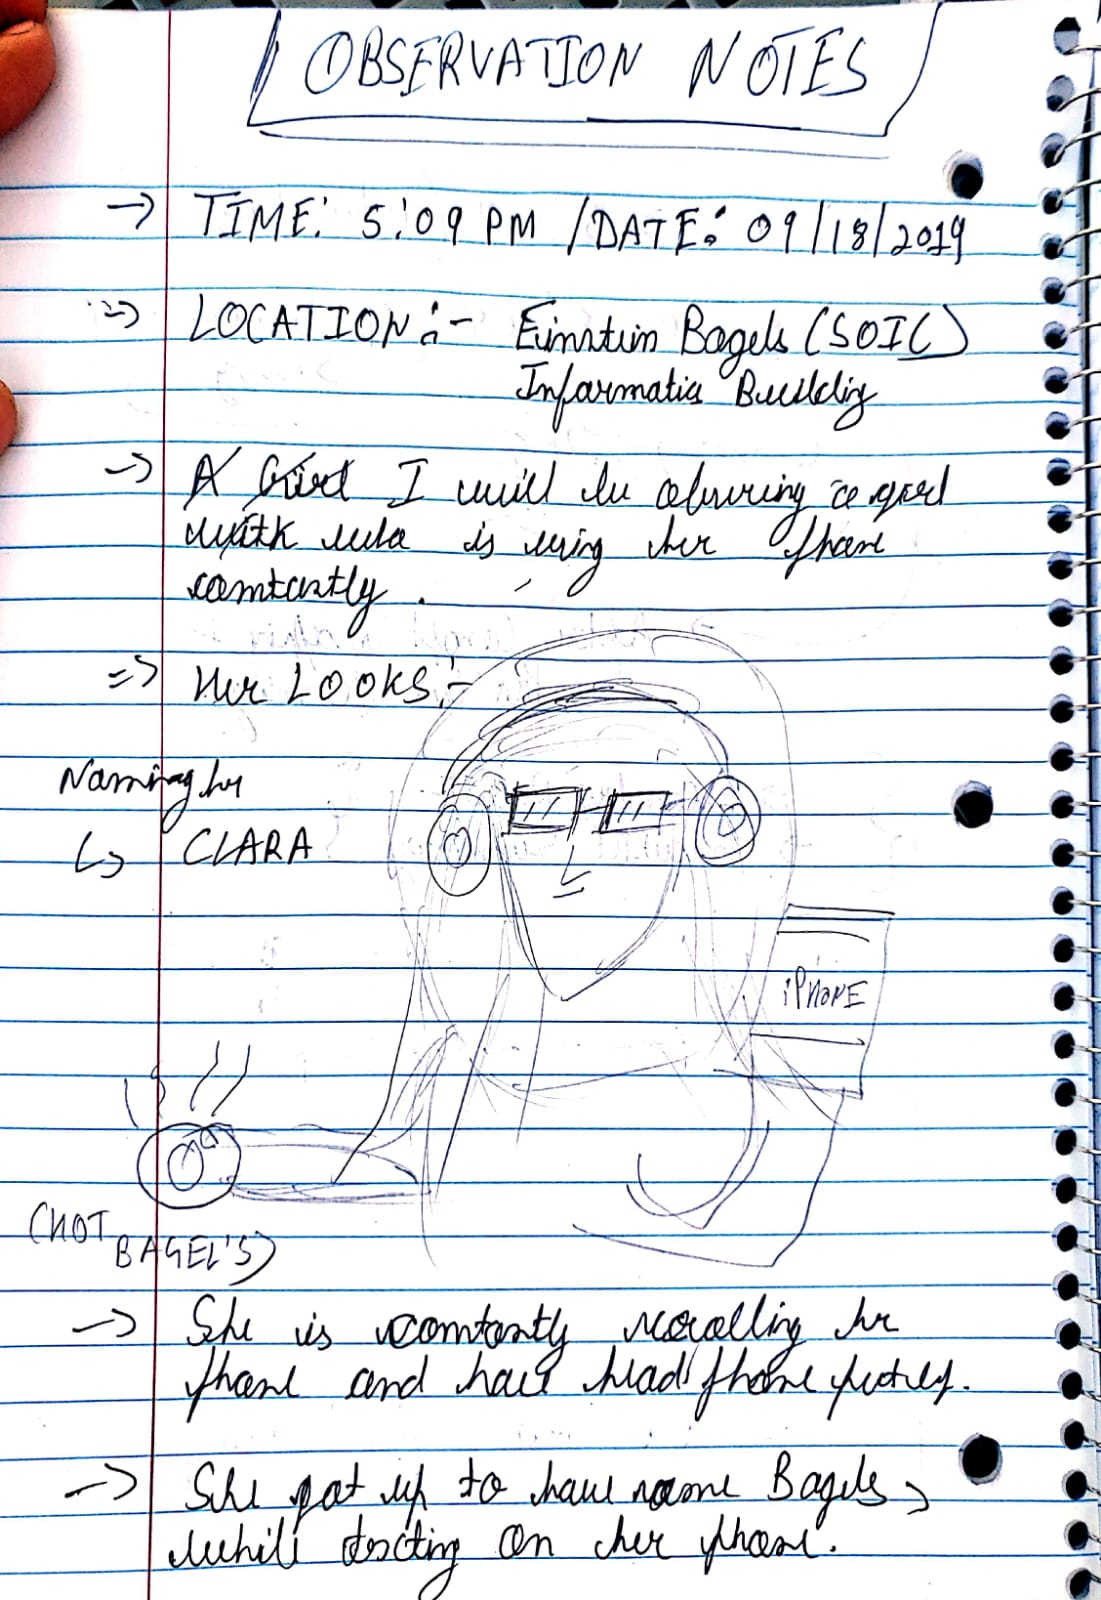 OBSERVATION NOTES
→ TIME: 5:09 PM / DATE: 09/18/2019
⇒ LOCATION:- Einstein Bagels (SOIC)
Informatics Building
→ A Girl I will be observing a girl
with who is using her phone
constantly.
⇒ Her LOOKS:-
Naming her
↳ CLARA
iPHONE
(HOT
BAGEL'S)
→ She is constantly scrolling her
phone and have head phone
→ She got up to have some Bagels,
while texting on her phone.